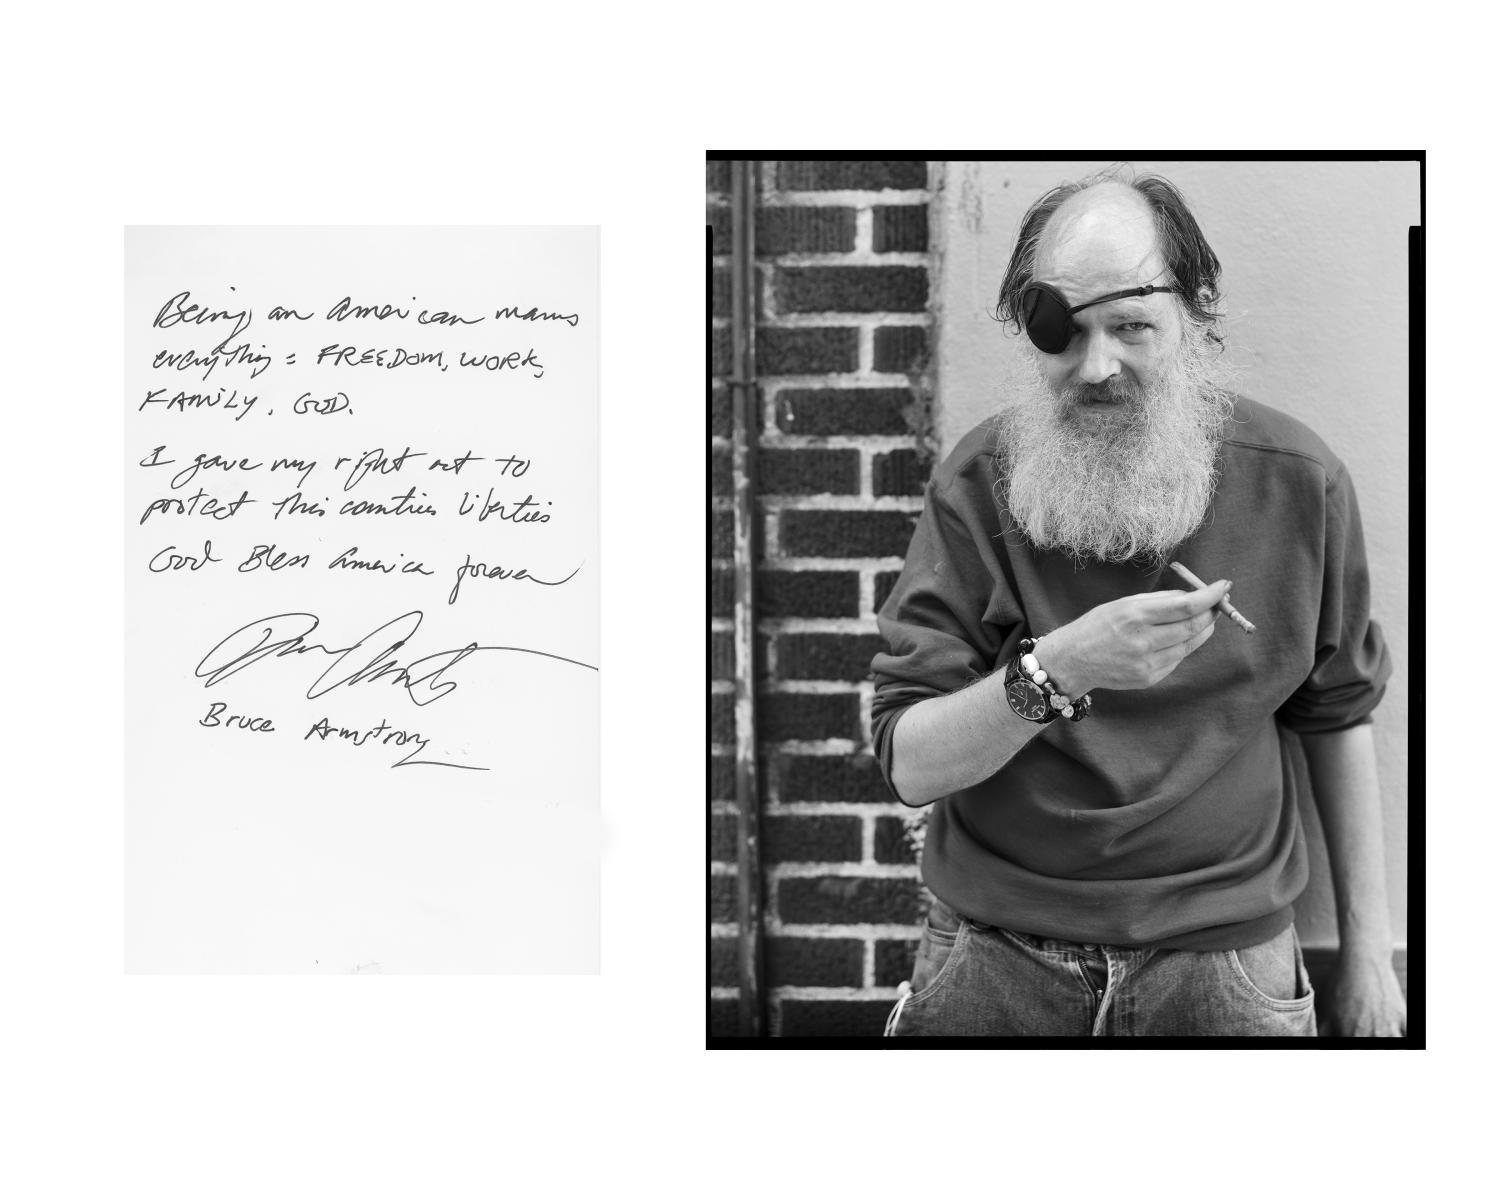 Being an American means
everything = FREEDOM, WORK,
FAMILY, GOD.
I gave my right to
protect this countries liberties
God Bless America forever
Bruce Armstrong